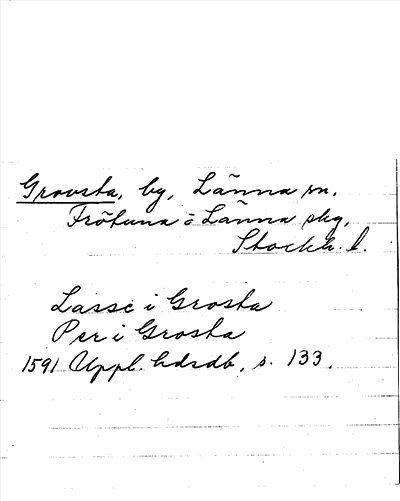 Grovsta, by, Länna sn.
Frötuna o Länna skg,
Stockh. l.
Lasse i Grosta
Per i Grosta
1591 Uppl. hdrdb, s. 133.